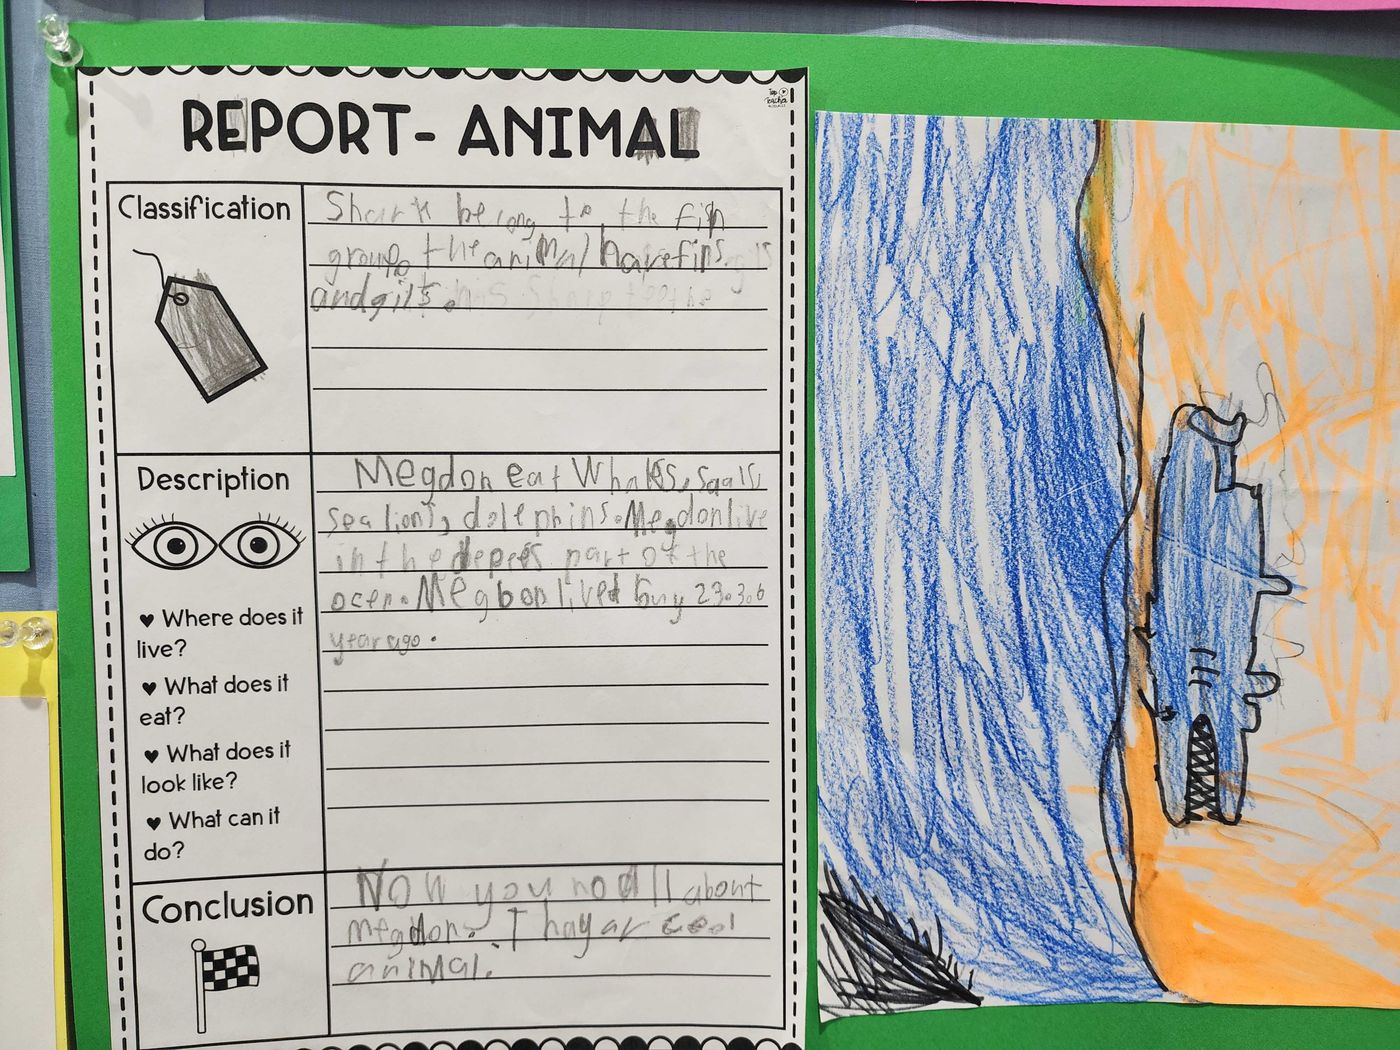 REPORT- ANIMAL
Classification
Shark belong to the fish
group the animal have fins
and gils.
Description
♥ Where does it
live?
♥ What does it
eat?
♥ What does it
look like?
♥ What can it
do?
Megdon eat Whales, saals,
sea lions, dolephins. Megdon live
in the depees part of the
ocen. Megbon lived buy 23.3.6
year ago.
Conclusion
Now you nod ll about
megdon. Thay ar cool
animal.